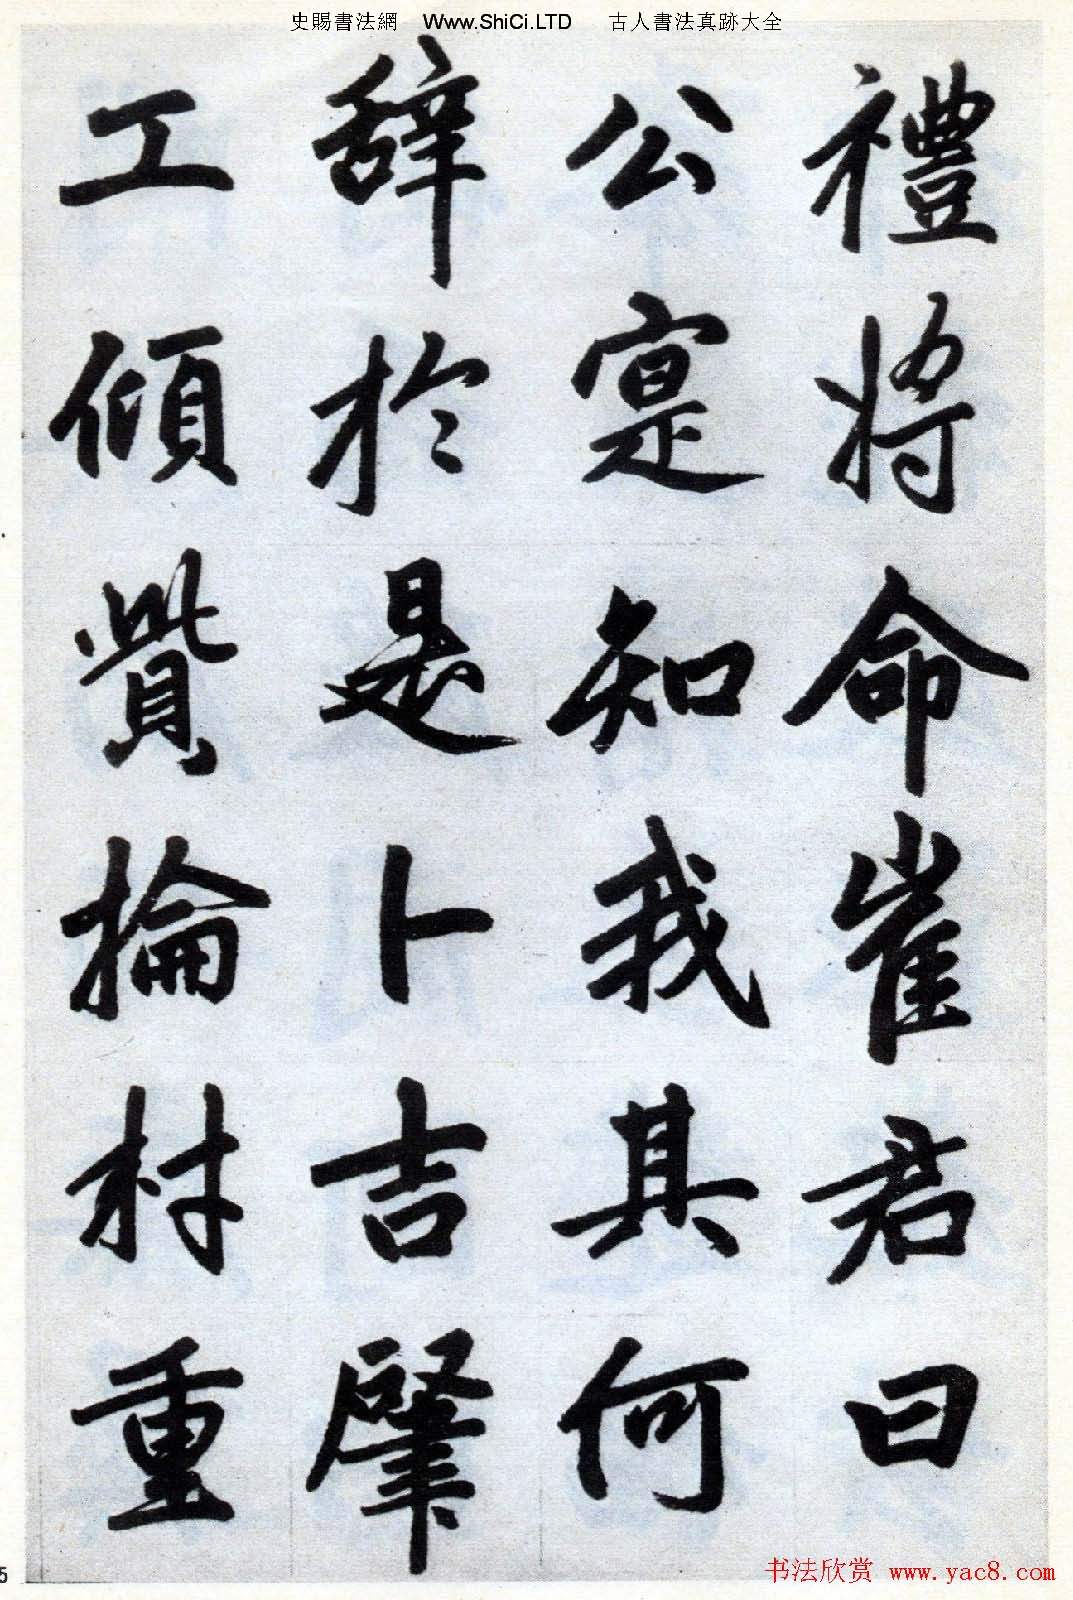 史賜書法網 Www.ShiCi.LTD 古人書法真跡大全
禮將命崔君曰
公寔知我其何
辭於是卜吉肇
工傾貲掄材重
5
书法欣赏 www.yac8.com